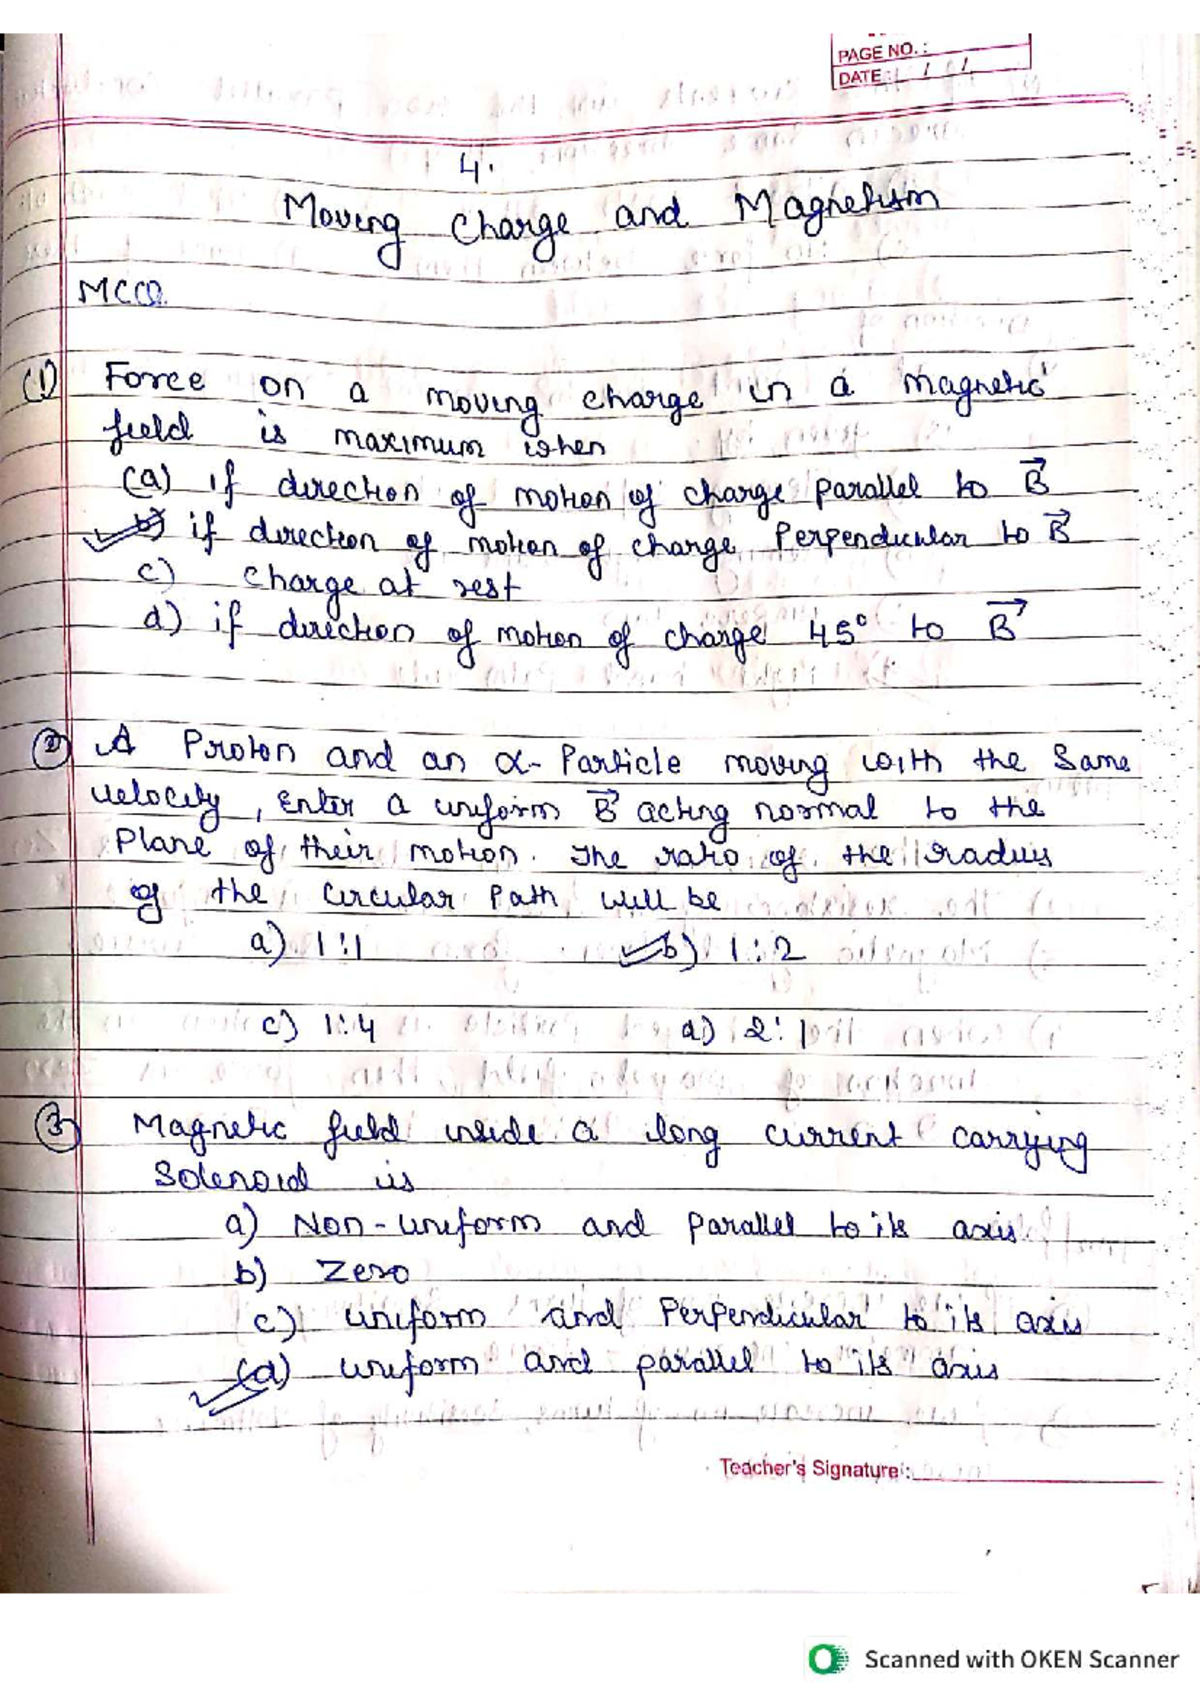 PAGE NO.:
DATE: / /
4.
Moving Charge and Magnetism
MCQ
(1) Force on a moving charge in a magnetic
field is maximum when
(a) if direction of motion of charge parallel to B⃗
b) if direction of motion of charge Perpendicular to B⃗
c) charge at rest
d) if direction of motion of charge 45° to B⃗
(2) A Proton and an α-Particle moving with the Same
velocity, Enter a uniform B⃗ acting normal to the
Plane of their motion. The ratio of the radius
of the Circular Path will be
a) 1:1 b) 1:2
c) 1:4 d) 2:1
(3) Magnetic field inside a long current carrying
Solenoid is
a) Non-uniform and parallel to its axis
b) Zero
c) uniform and Perpendicular to its axis
(d) uniform and parallel to its axis
Teacher's Signature:
Scanned with OKEN Scanner